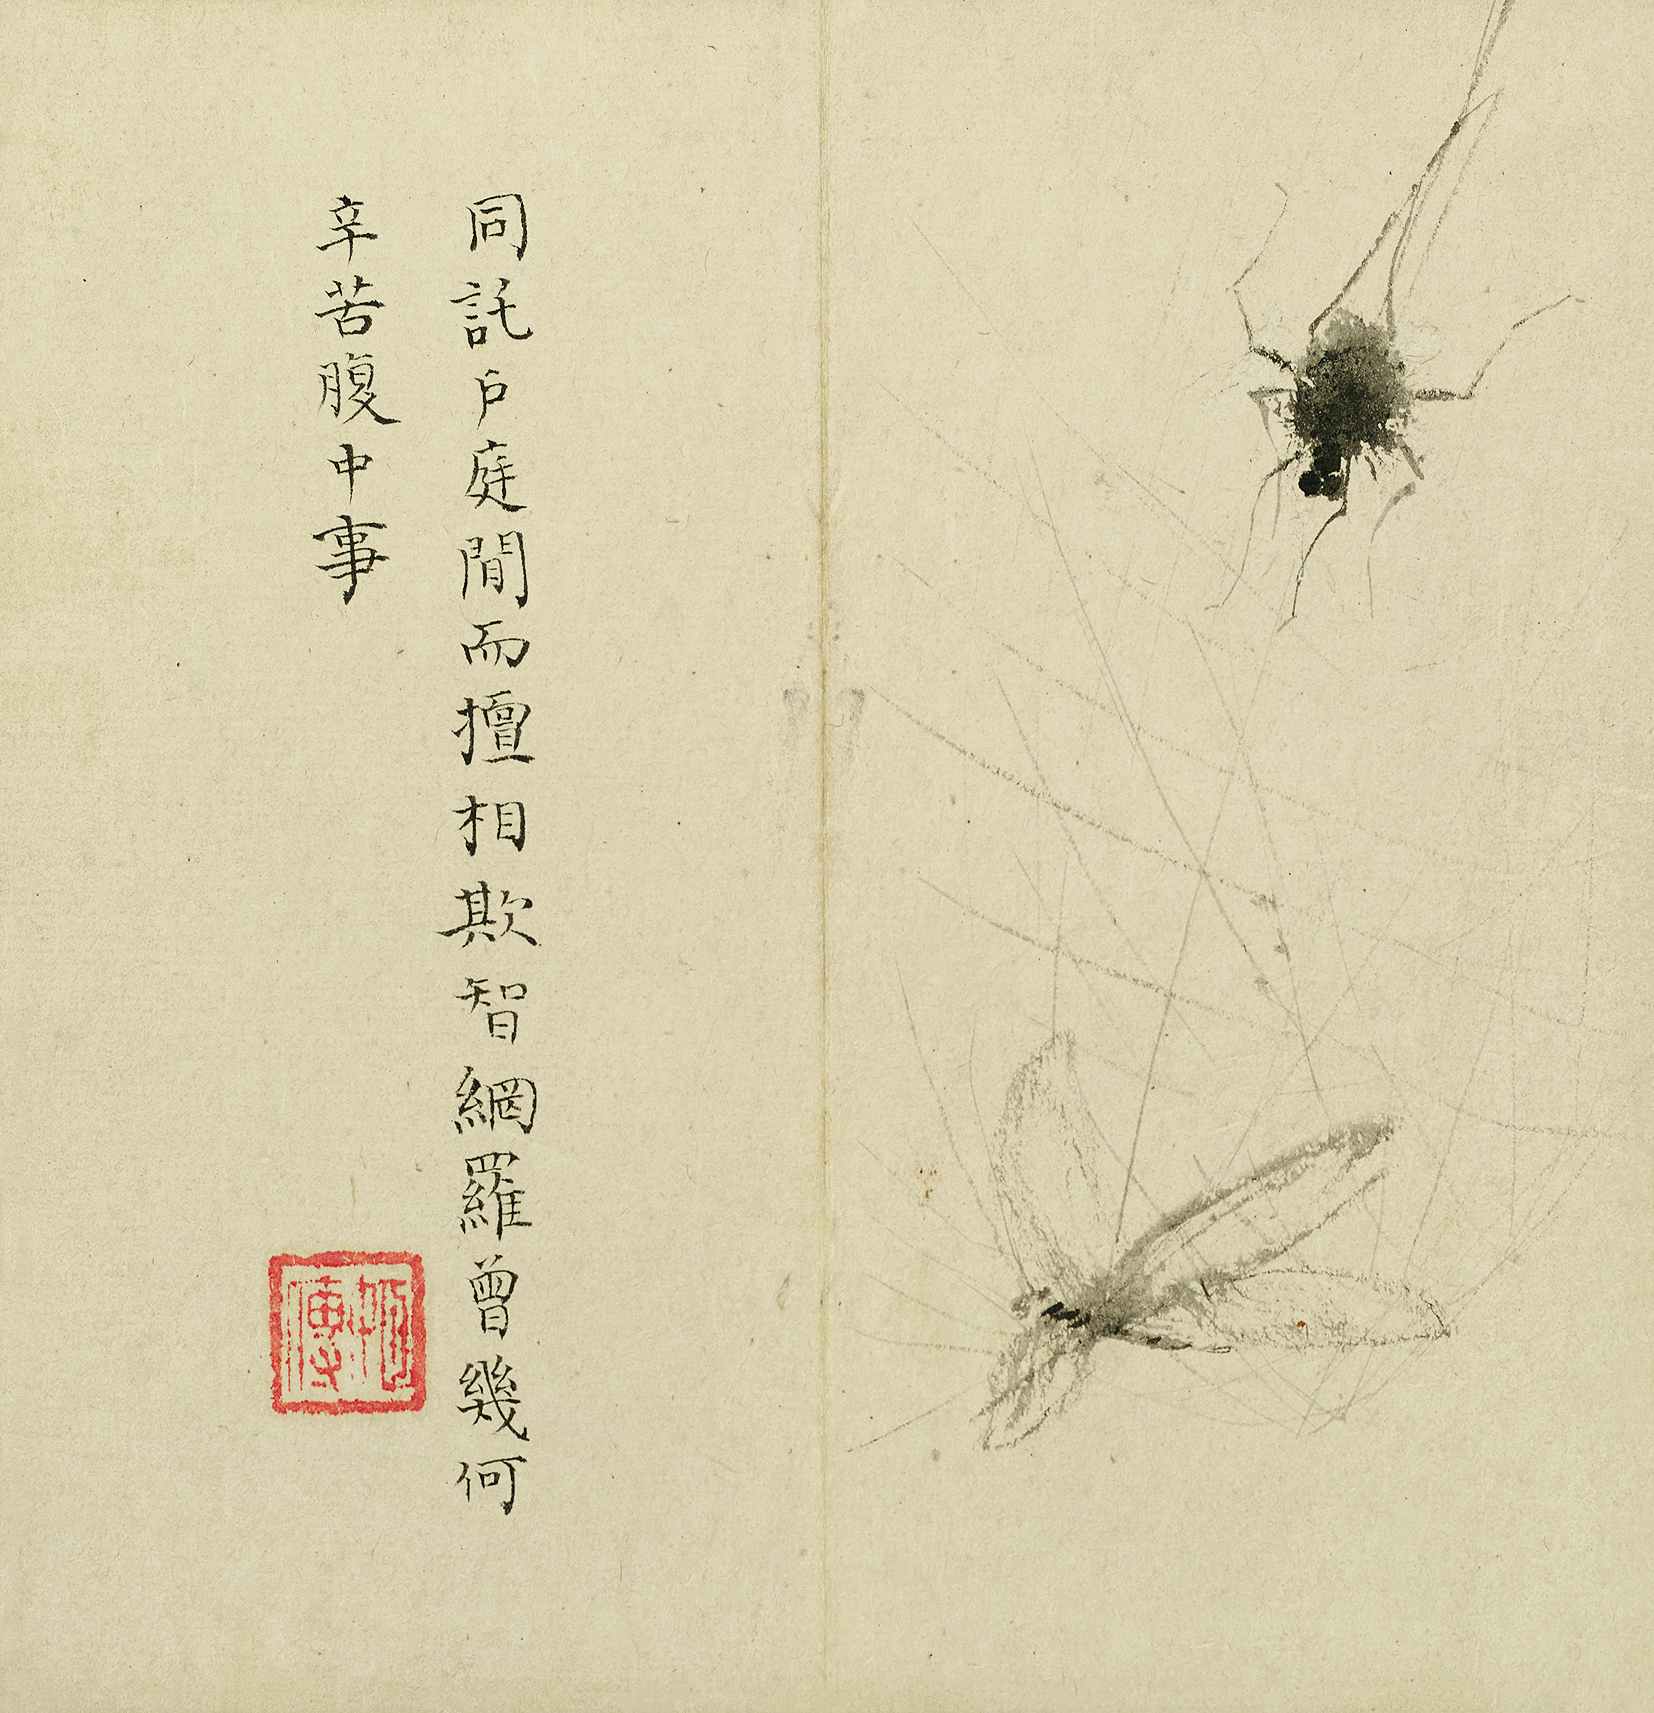 同託戶庭間而擅相欺智網羅曾幾何
辛苦腹中事